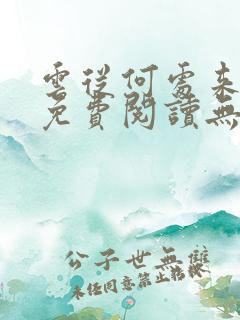 雲從何處來
免費閱讀無
公子世無雙
未經同意禁止轉載